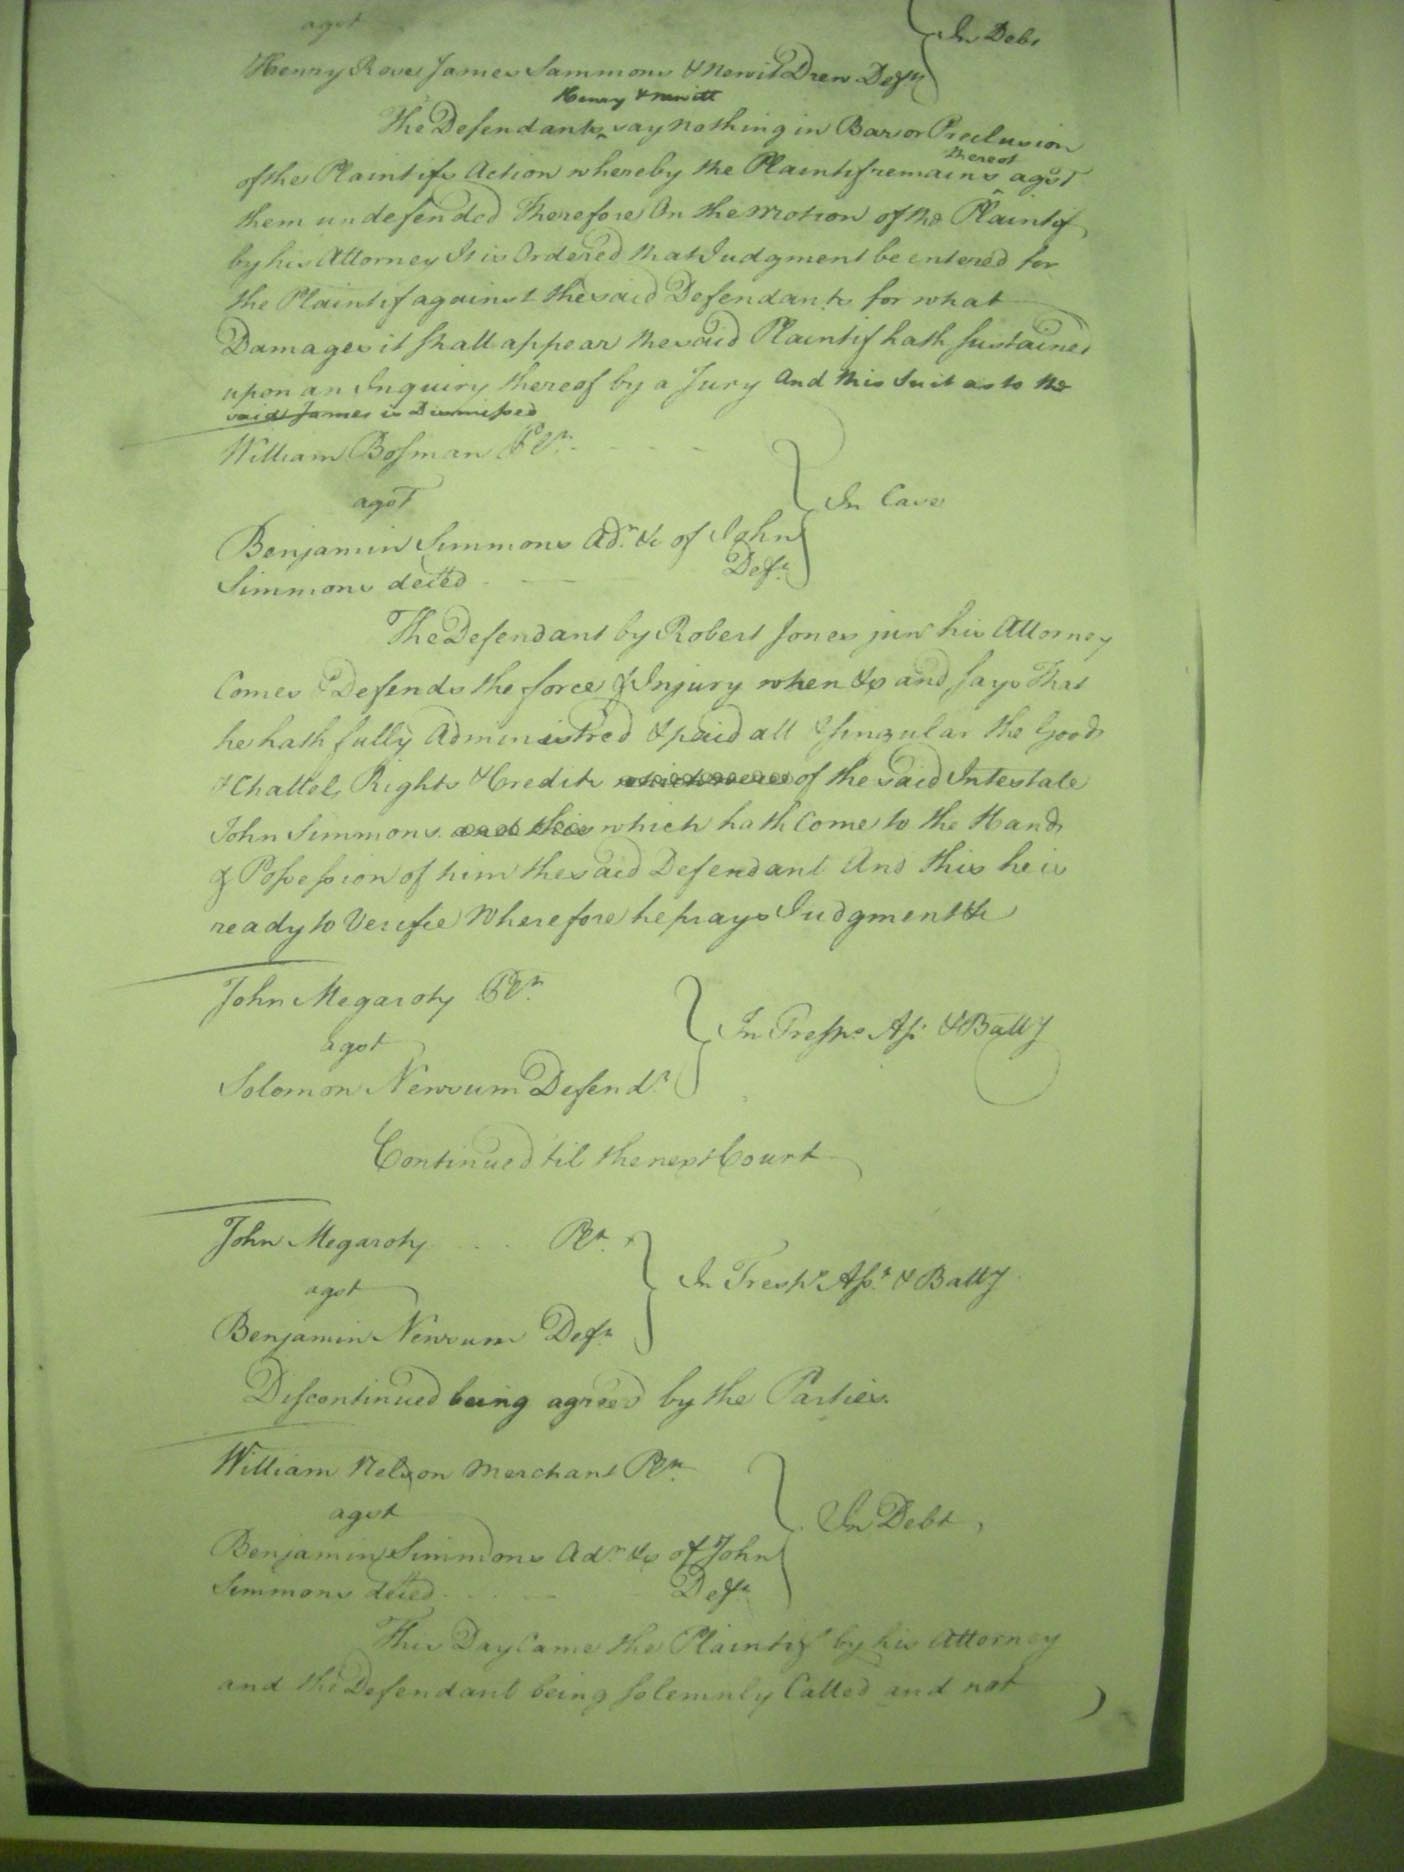 agst
In Debt
Henry Rose James Sammons & Newit Drew Defts
Henry & newitt
The Defendants say nothing in Bar or Preclusion
thereof
of the Plaintifs Action whereby the Plaintif remains agst
them undefended Therefore On the Motion of the Plaintif
by his Attorney It is Ordered that Judgment be entered for
the Plaintif against the said Defendants for what
Damages it shall appear the said Plaintif hath sustained
upon an Inquiry thereof by a Jury And this Suit as to the
said James is Dismissed
William Bosman Plt.
agst
In Case
Benjamin Simmons Adr. &c of John
Simmons deced Deft.
The Defendant by Robert Jones junr his Attorney
Comes & Defends the force & Injury when &c and says That
he hath fully Administred & paid all & singular the Goods
& Chattels Rights & Credits which were of the said Intestate
John Simmons and this which hath Come to the Hands
& Possession of him the said Defendant And this he is
ready to Verifie Wherefore he prays Judgment &c
John Megaroty Plt.
agst
In Tresps. Asst. & Batty
Solomon Newsum Defendt.
Continued til the next Court
John Megaroty Plt.
agst
In Tresps. Asst. & Batty
Benjamin Newsum Deft.
Discontinued being agreed by the Parties.
William Nelson Merchant Plt.
agst
In Debt
Benjamin Simmons Adr. &c of John
Simmons deced Deft.
This Day Came the Plaintif by his Attorney
and the Defendant being Solemnly Called and not